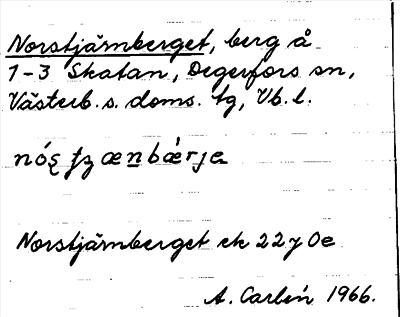 Norstjärnberget, berg å
1-3 Skatan, Degerfors sn,
Västerb. s. doms. tg, Vb. l.
Norstjärnberget ek 22 7 0e
A. Carlén 1966.